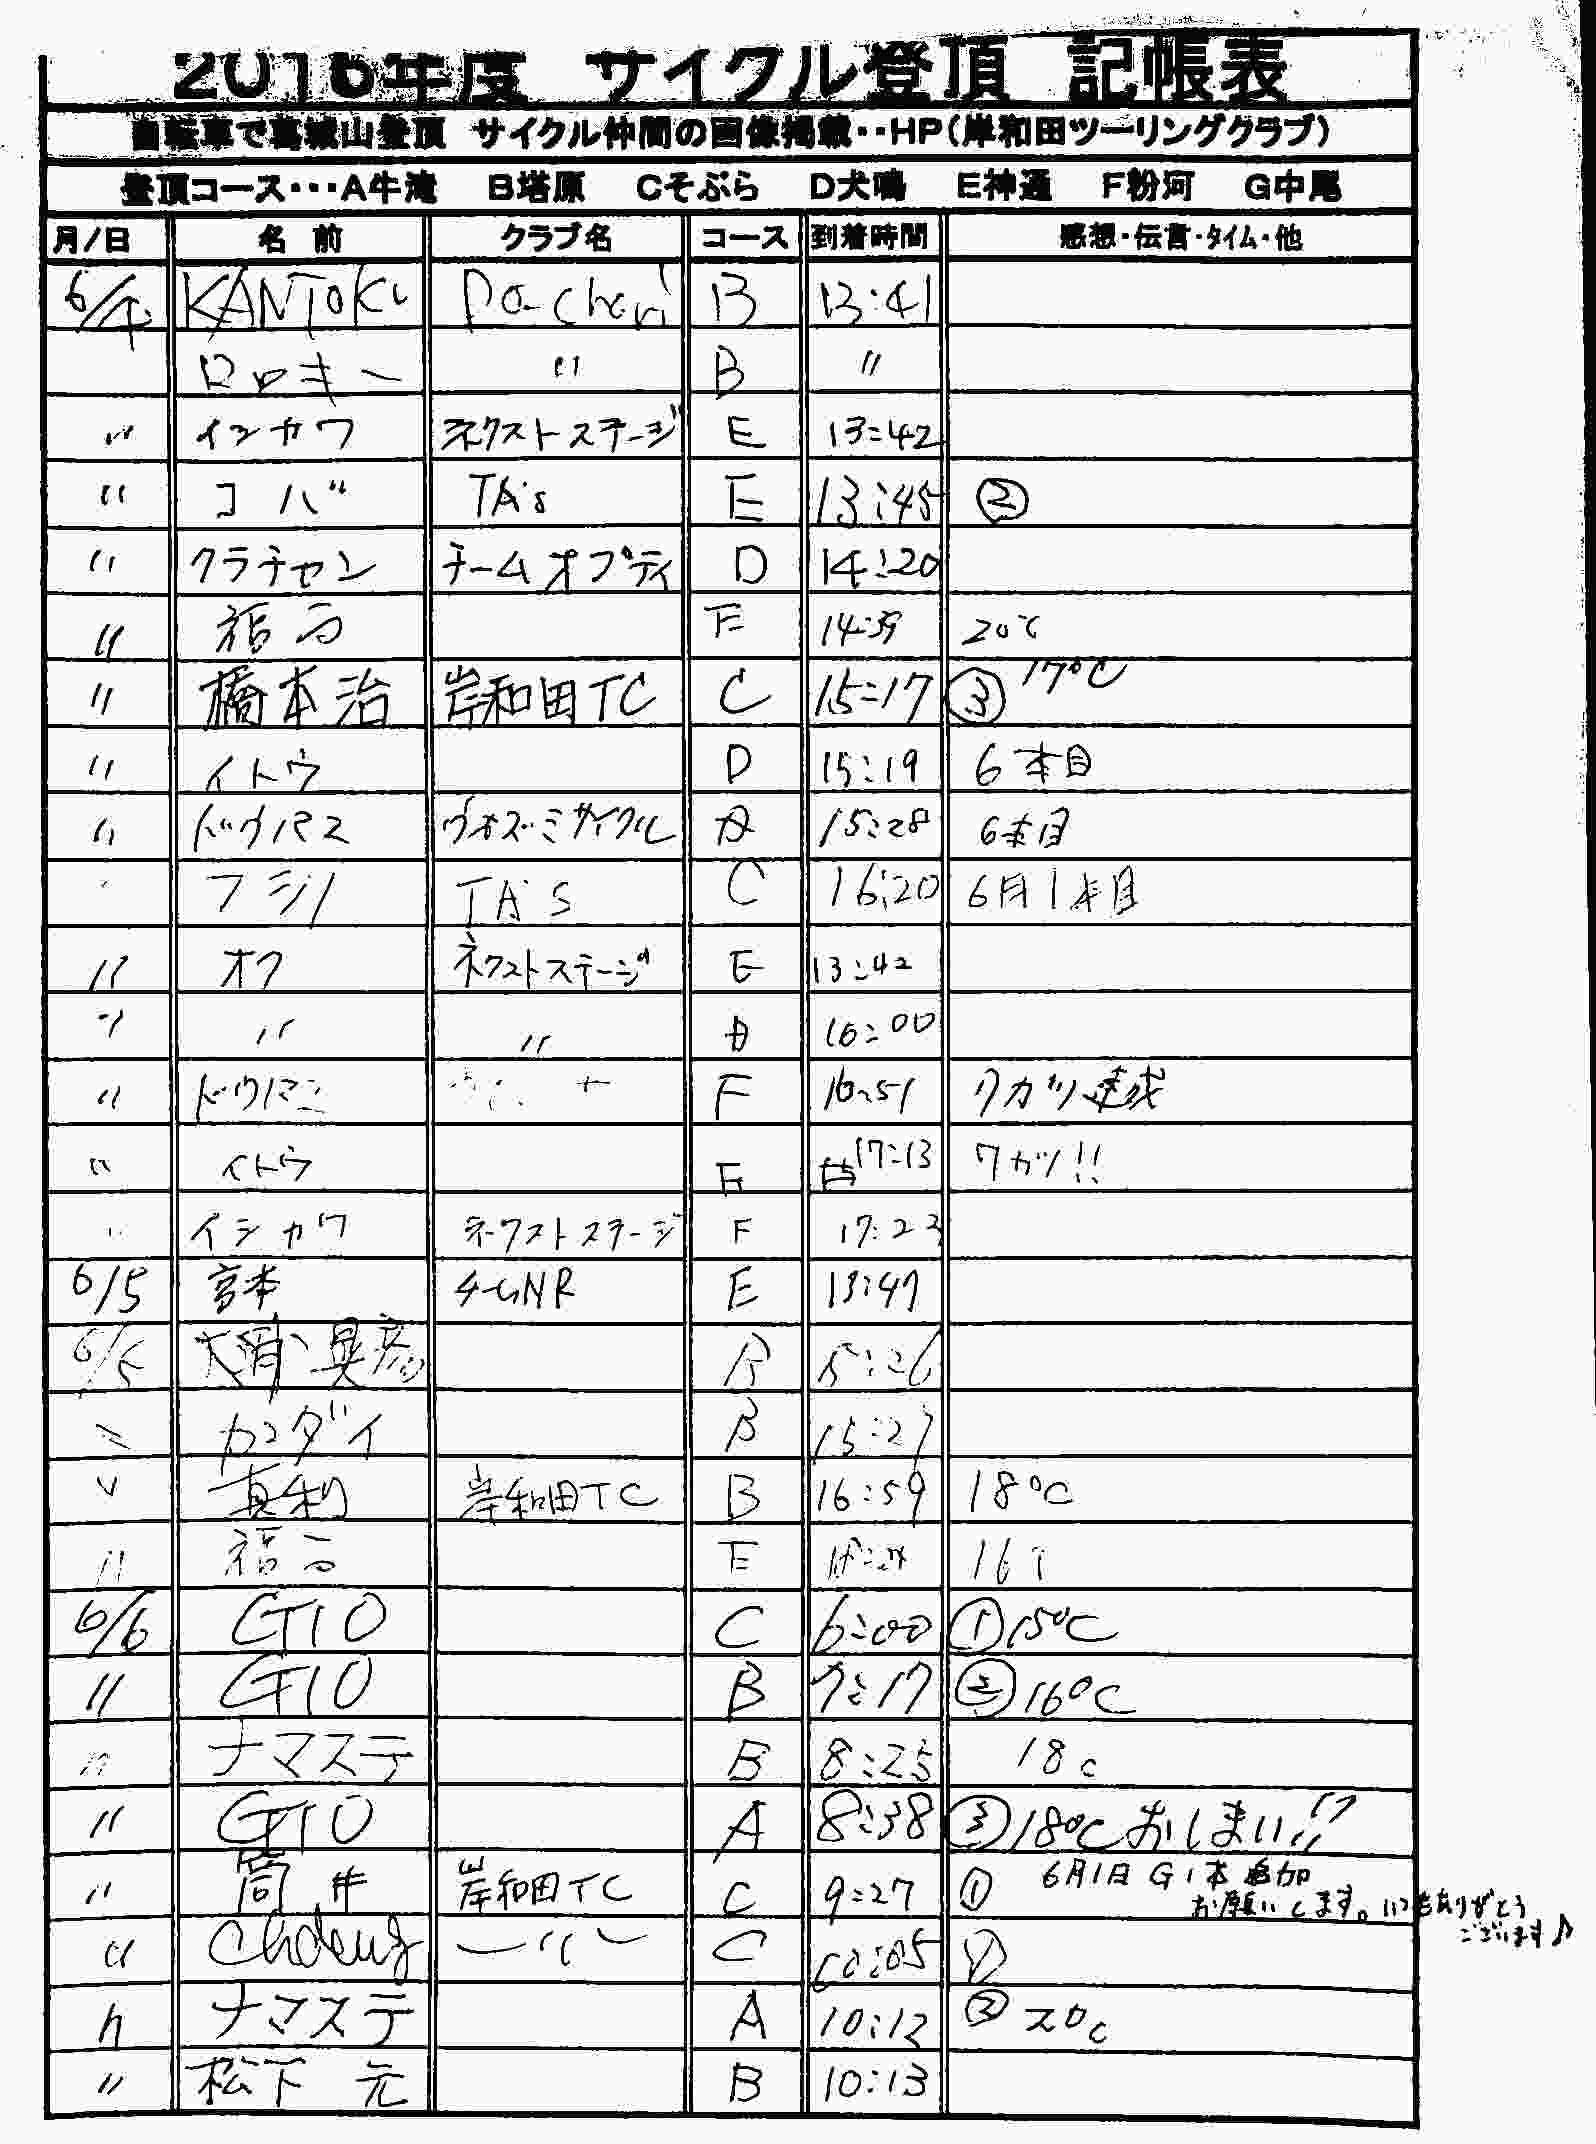 2016年度 サイクル登頂 記帳表
自転車で葛城山登頂 サイクル仲間の画像掲載‥HP(岸和田ツーリングクラブ)
登頂コース…A牛滝 B塔原 Cそぶら D犬鳴 E神通 F粉河 G中尾
月/日 名前 クラブ名 コース 到着時間 感想・伝言・タイム・他
6/4 KANTOKU Pa-chari B 13:41
ロッキー 〃 B 〃
〃 イシカワ ネクストステージ E 13:42
〃 コバ TA's E 13:45 ②
〃 クラチャン チームオプティ D 14:20
〃 F 14:39 20℃
〃 橋本治 岸和田TC C 15:17 ③ 17℃
〃 イトウ D 15:19 6本目
〃 ヴォズミサイクル A 15:28 6本目
フジノ TA'S C 16:20 6月1本目
〃 オク ネクストステージ E 13:42
〃 〃 〃 A 16:00
〃 F 16:51 7カツ達成
〃 イトウ F 17:13 7カツ!!
〃 イシカワ ネクストステージ F 17:23
6/5 宮本 チームNR E 13:47
6/5 B 15:26
〃 カンダイ B 15:27
〃 真利 岸和田TC B 16:59 18℃
〃 E 16
6/6 GTIO C 6:00 ① 15℃
〃 GTIO B 7:17 ② 16℃
〃 ナマステ B 8:25 18c
〃 GTIO A 8:38 ③ 18℃ おしまい!!
〃 筒井 岸和田TC C 9:27 ① 6月1日 G1本追加
お願いします。いつもありがとう
ございます♪
〃 〃 C 10:05 ①
〃 ナマステ A 10:12 ② 20c
〃 松下 元 B 10:13